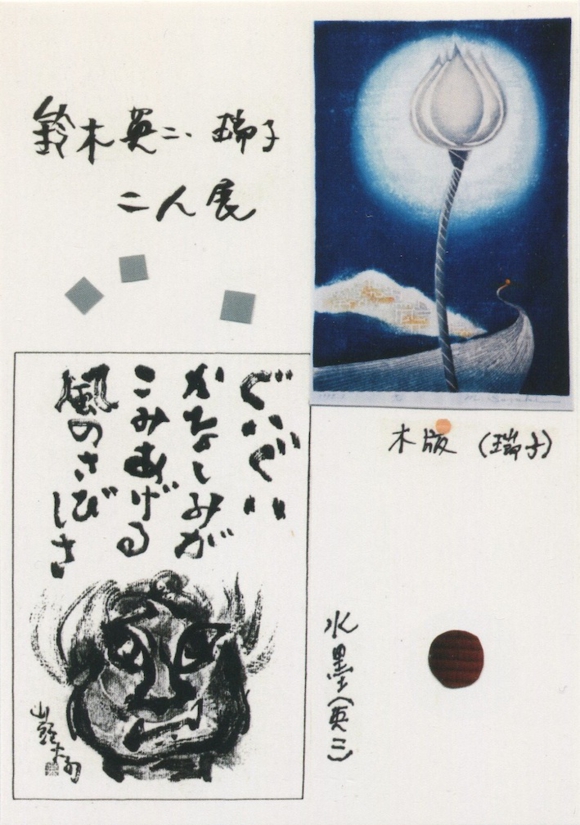 鈴木英二、瑞子
二人展
木版(瑞子)
ぐいぐい
かなしみが
こみあげる
風のさび
しさ
山頭火句
水墨(英二)